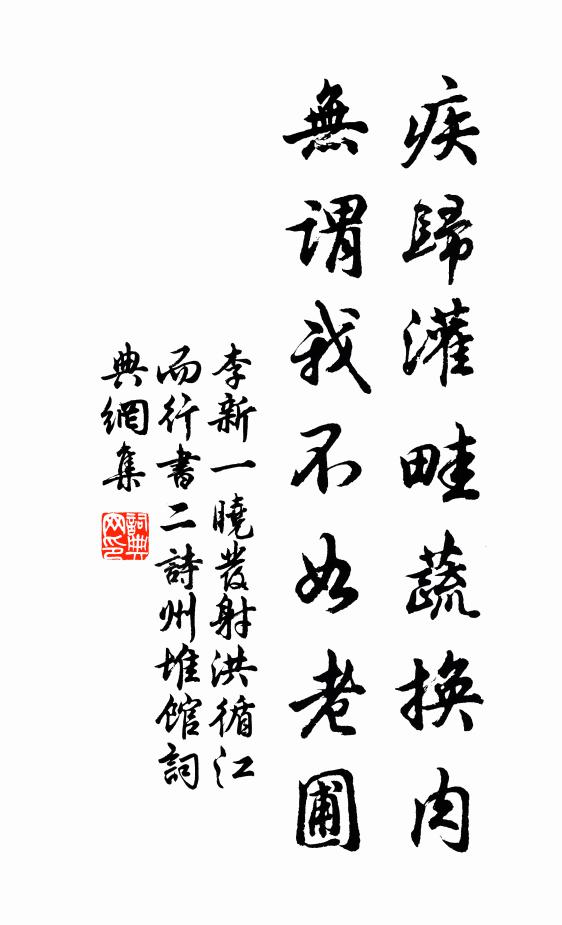 疾歸灌畦蔬換肉
無謂我不如老圃
李新一曉發射洪循江
而行書二詩州堆館詞
典網集
詞典網印